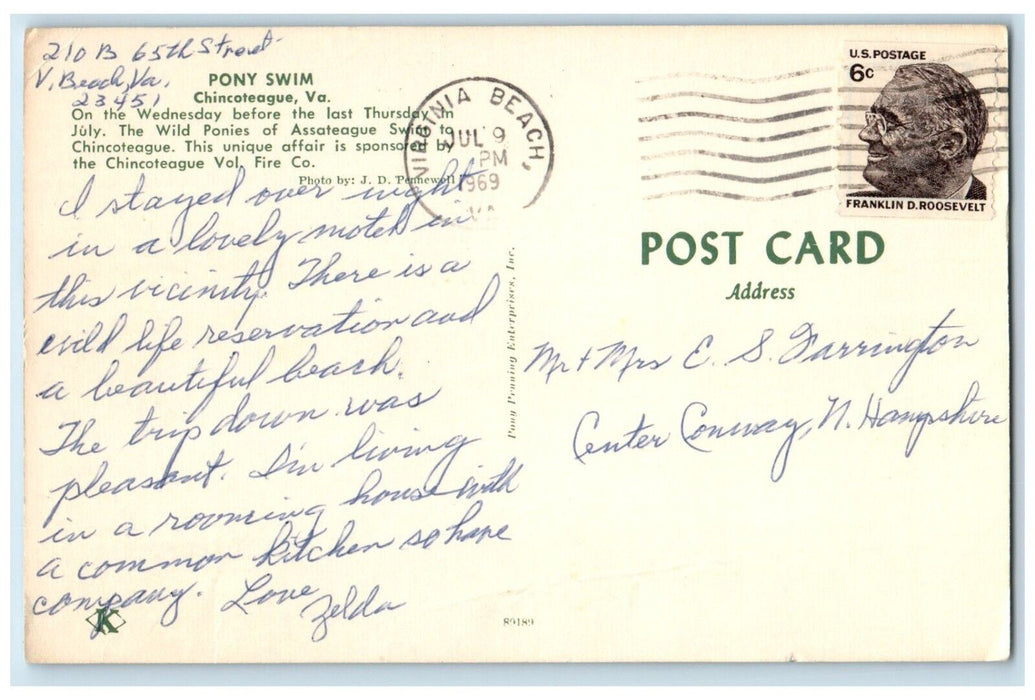 210 B 65th Street
V. Beach, Va.
23451
PONY SWIM
Chincoteague, Va.
On the Wednesday before the last Thursday in
July. The Wild Ponies of Assateague Swim to
Chincoteague. This unique affair is sponsored by
the Chincoteague Vol. Fire Co.
Photo by: J. D. Pennewell
I stayed over night
in a lovely motel in
this vicinity. There is a
wild life reservation and
a beautiful beach.
The trip down was
pleasant. I'm living
in a rooming house with
a common kitchen so have
company. Love
Zelda
K
VIRGINIA BEACH,
JUL 9
PM
1969
VA
U.S. POSTAGE
6c
FRANKLIN D. ROOSEVELT
POST CARD
Address
Pony Penning Enterprises, Inc.
Mr + Mrs E. S. Farrington
Center Conway, N. Hampshire
89189